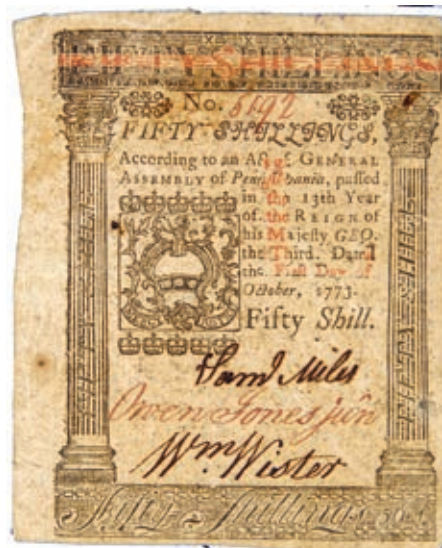 FIFTY SHILLINGS
No. 5192
FIFTY SHILLINGS,
According to an Act of GENERAL
ASSEMBLY of Pennsylvania, passed
in the 13th Year
of the REIGN of
his Majesty GEO.
the Third. Dated
the First Day of
October, 1773.
Fifty Shill.
Saml Miles
Owen Jones jun
Wm Wister
Fifty Shillings